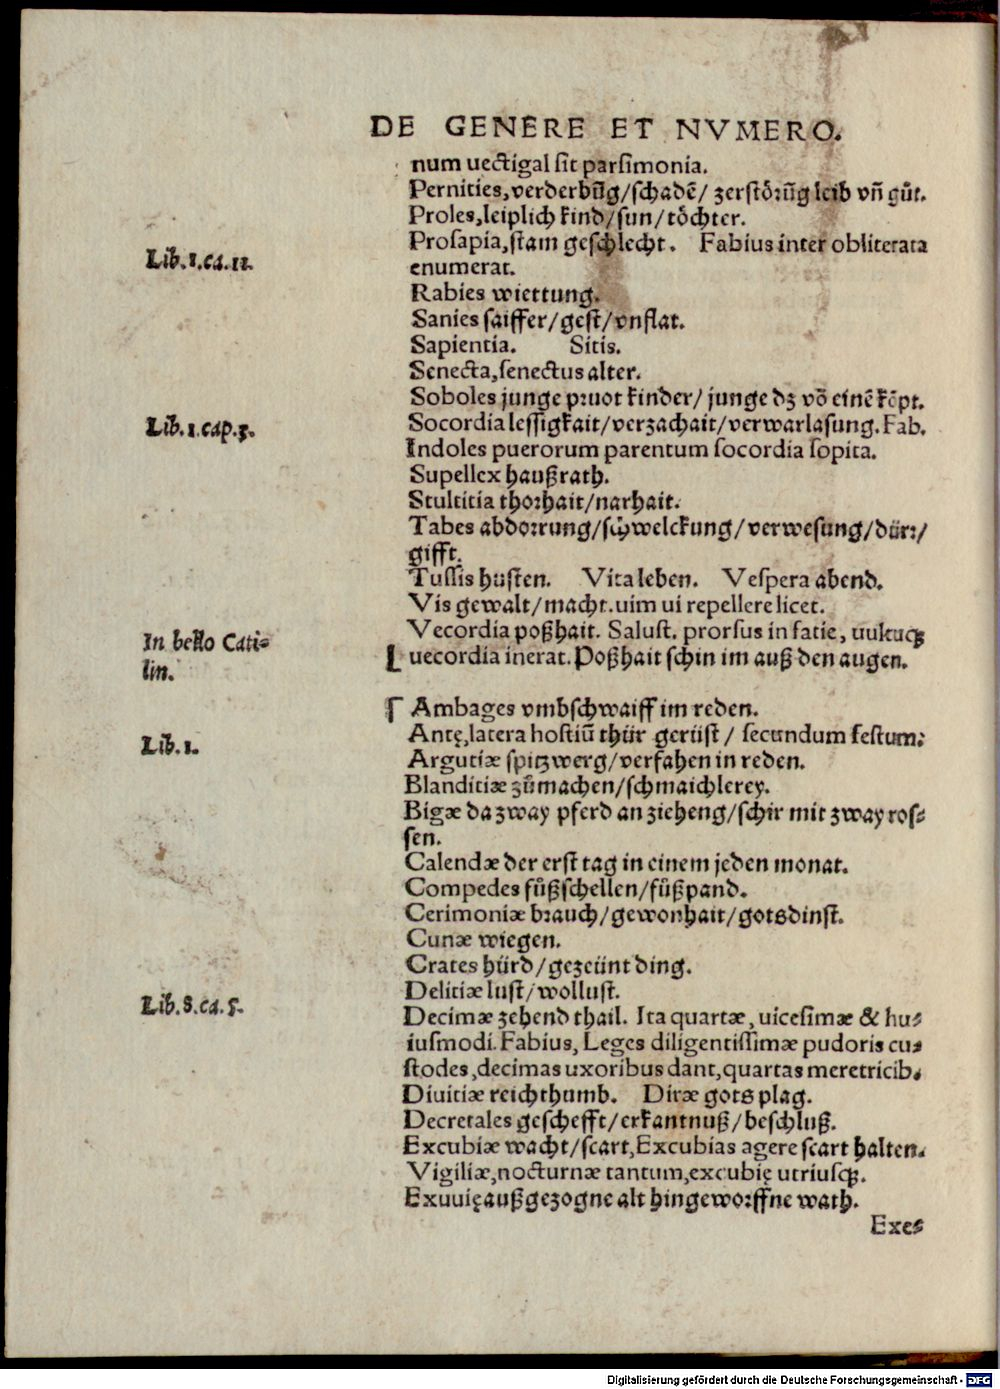 DE GENERE ET NVMERO.
num uectigal sit parsimonia.
Pernities, verderbūg/schadē/ zerstörūg leib vñ gůt.
Proles, leiplich kind/sun/töchter.
Prosapia, stam geschlecht. Fabius inter obliterata
Lib.1.ca.11.
enumerat.
Rabies wiettung.
Sanies saiffer/gest/vnflat.
Sapientia. Sitis.
Senecta, senectus alter.
Soboles junge pruot kinder/ junge dz vō einē kēpt.
Socordia lessigkait/verzachait/verwarlasung. Fab.
Lib.1.cap.3.
Indoles puerorum parentum socordia sopita.
Supellex haußrath.
Stultitia thorhait/narhait.
Tabes abdorrung/schwelckung/verwesung/dürr/
gifft.
Tussis husten. Vita leben. Vespera abend.
Vis gewalt/macht. uim ui repellere licet.
Vecordia poßhait. Salust. prorsus in facie, uultuqꝫ
In bello Cati-
lin.
uecordia inerat. Poßhait schin im auß den augen.
Ambages vmbschwaiff im reden.
Antę, latera hostiū thür gerüst/ secundum festum:
Lib. 1.
Argutiæ spitzwerg/verfahen in reden.
Blanditiæ zůmachen/schmaichlerey.
Bigæ da zway pferd an zieheng/schir mit zway ros-
sen.
Calendæ der erst tag in einem jeden monat.
Compedes fůßschellen/fůßpand.
Cerimoniæ brauch/gewonhait/gotsdinst.
Cunæ wiegen.
Crates hürd/gezeünt ding.
Delitiæ lust/wollust.
Lib.8.ca.5.
Decimæ zehend thail. Ita quartæ, uicesimæ & hu-
iusmodi. Fabius, Leges diligentissimæ pudoris cu-
stodes, decimas uxoribus dant, quartas meretricib.
Diuitiæ reichthumb. Diræ gots plag.
Decretales geschefft/erkantnuß/beschluß.
Excubiæ wacht/scart, Excubias agere scart halten.
Vigiliæ, nocturnæ tantum, excubię utriusqꝫ.
Exuuię außgezogne alt hingeworffne wath.
Exe-
Digitalisierung gefördert durch die Deutsche Forschungsgemeinschaft - DFG